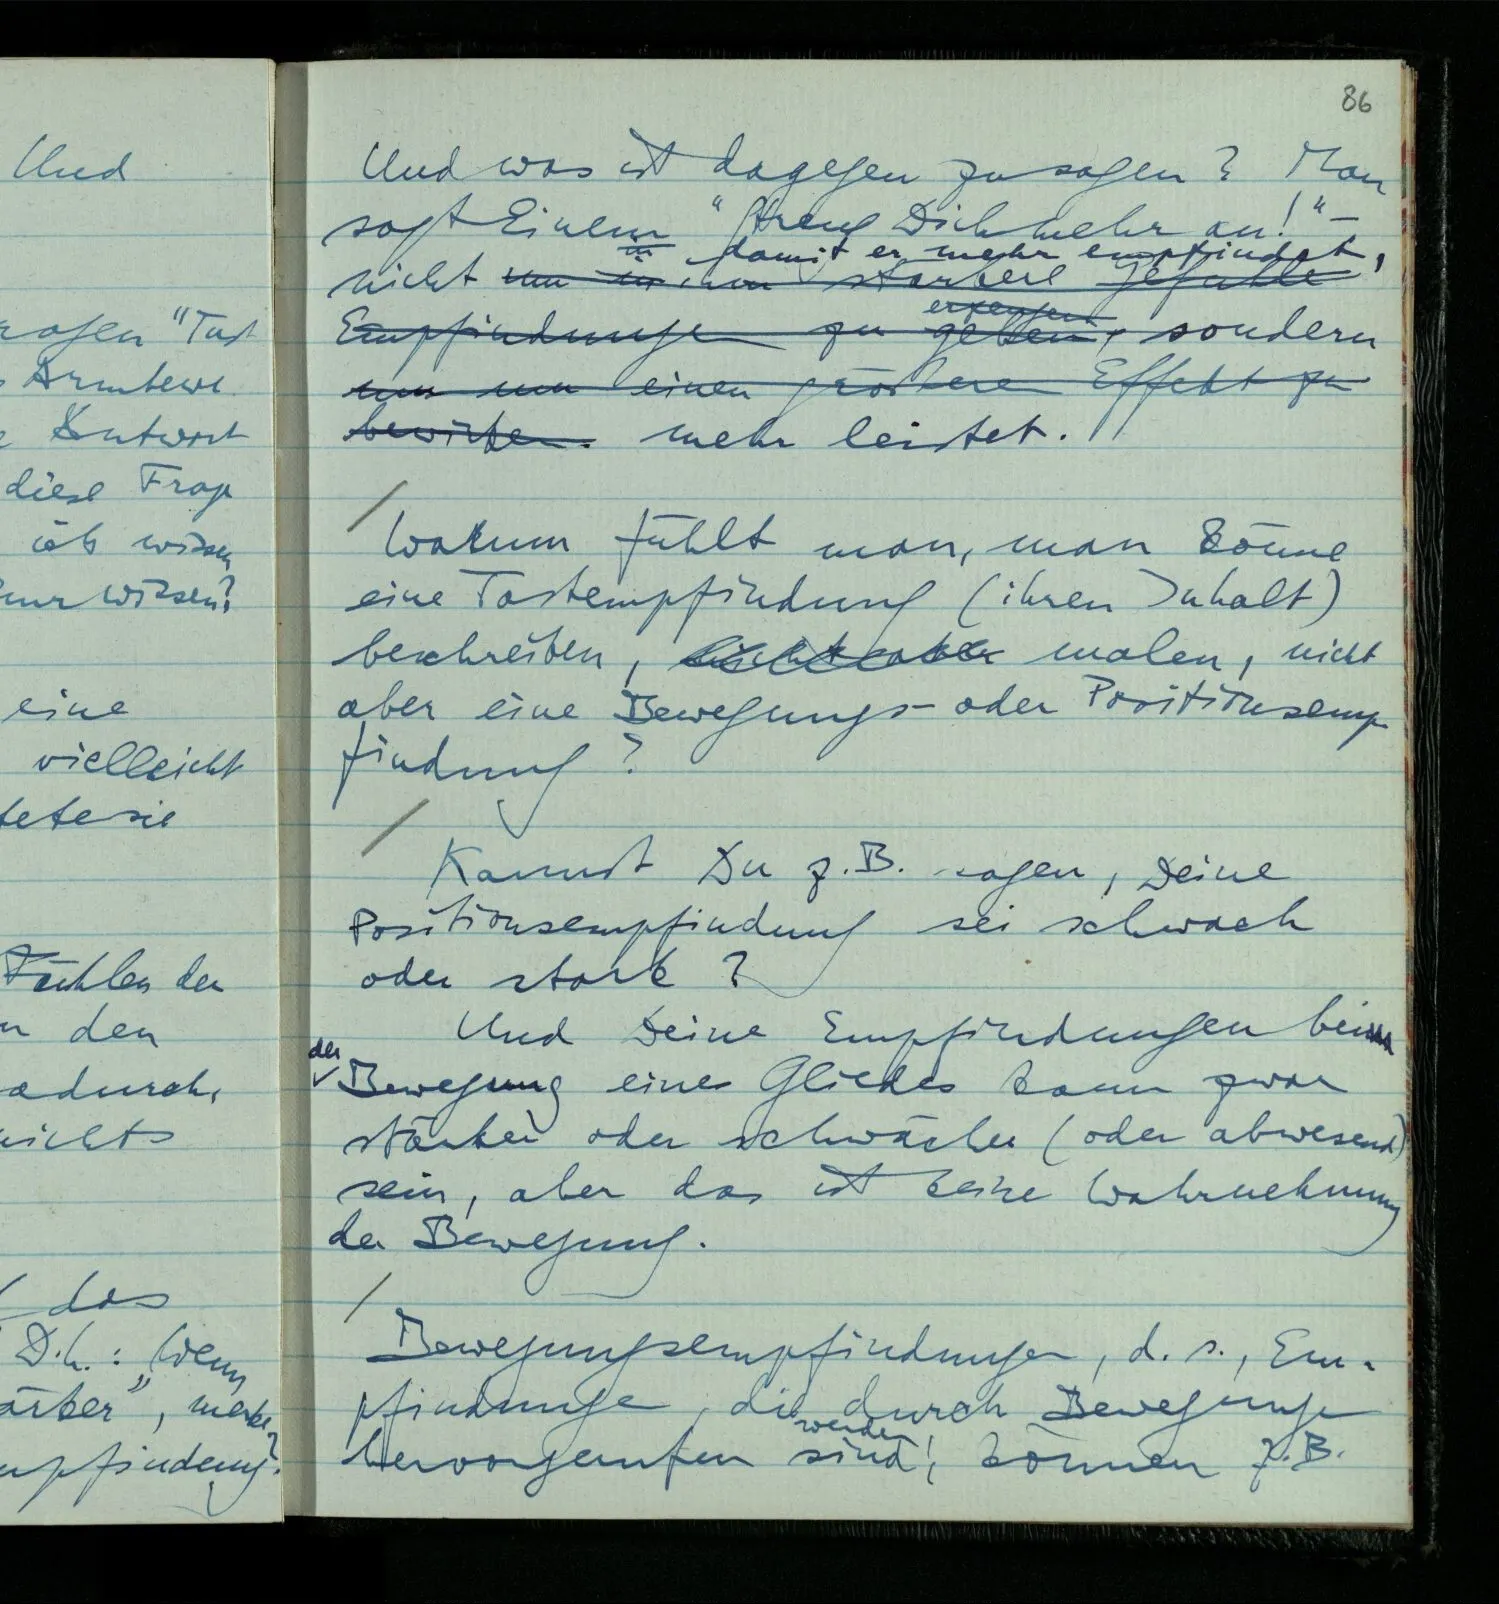 Und
rafen "Tast
Armbewe
Antwort
diese Frag
ich wissen
nur wissen?
eine
vielleicht
tete sie
Fühlen der
den
adurch,
nichts
das
D.h.: "Wenn
ärker", merke
mpfindung?
86
Und was ist dagegen zu sagen? Man
sagt Einem "Streng Dich mehr an!" –
damit er mehr empfindet,
nicht um ihm stärkere Gefühle
erzeugen
Empfindungen zu geben, sondern
um einen größere Effekt zu
bewirken. mehr leistet.
Warum fühlt man, man könne
eine Tastempfindung (ihren Inhalt)
beschreiben, malen, nicht
aber eine Bewegungs- oder Positionsemp
findung?
Kannst Du z.B. sagen, Deine
Positionsempfindung sei schwach
oder stark?
Und Deine Empfindungen bei
der
Bewegung eines Gliedes kann zwar
stärker oder schwächer (oder abwesend)
sein, aber das ist keine Wahrnehmung
der Bewegung.
Bewegungsempfindungen, d.s., Em-
pfindungen, die durch Bewegungen
werden
hervorgerufen sind, können z.B.